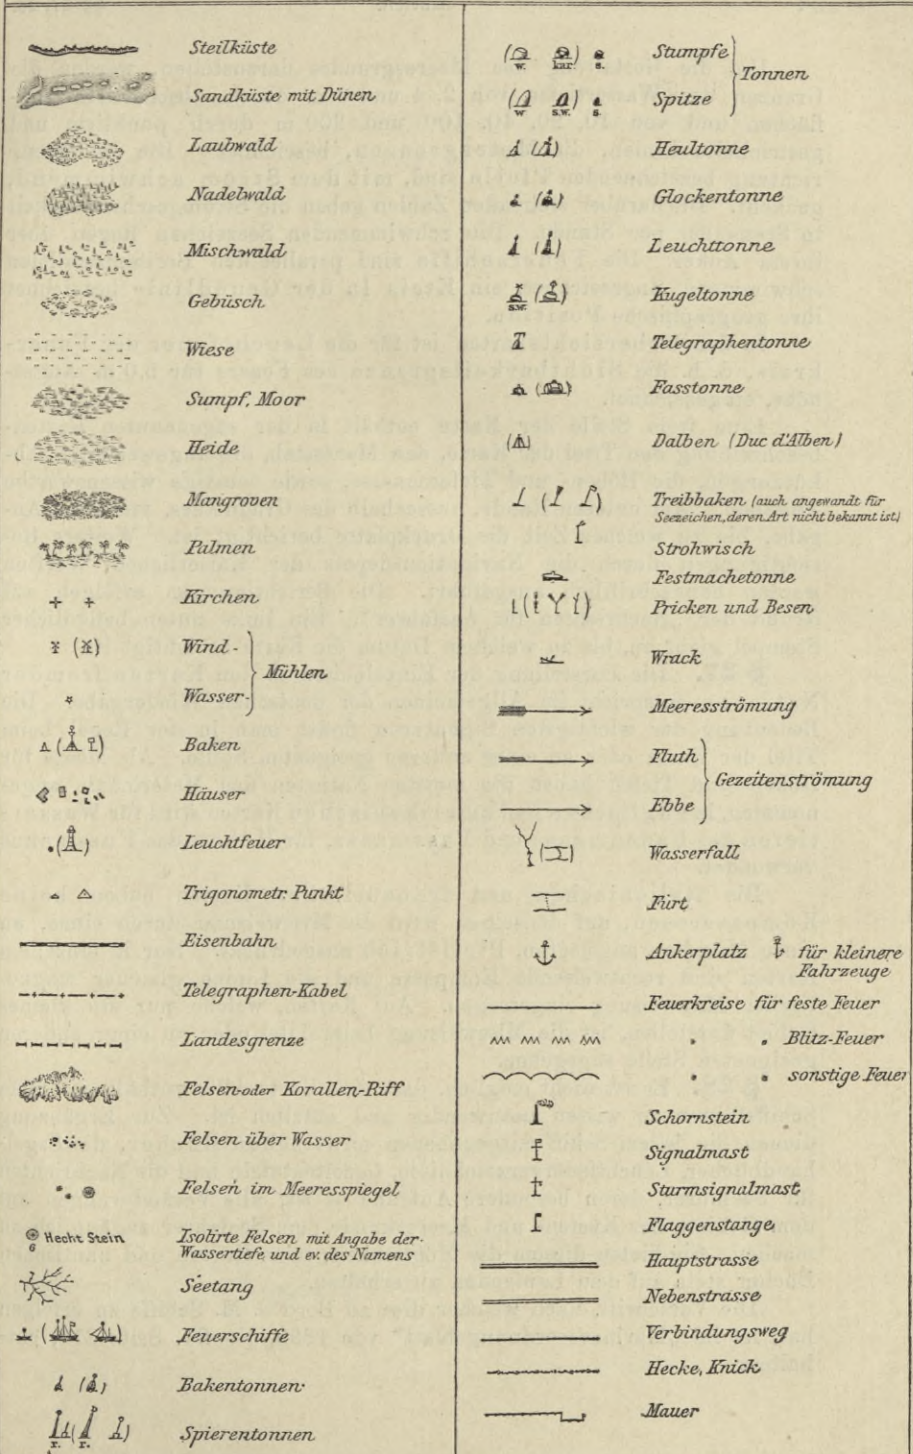 Steilküste
Sandküste mit Dünen
Laubwald
Nadelwald
Mischwald
Gebüsch
Wiese
Sumpf, Moor
Heide
Mangroven
Palmen
Kirchen
Wind-
Mühlen
Wasser-
Baken
Häuser
Leuchtfeuer
Trigonometr. Punkt
Eisenbahn
Telegraphen-Kabel
Landesgrenze
Felsen-oder Korallen-Riff
Felsen über Wasser
Felsen im Meeresspiegel
Hecht Stein Isolirte Felsen mit Angabe der
6 Wassertiefe und ev. des Namens
Seetang
Feuerschiffe
Bakentonnen
Spierentonnen
r. r.
Stumpfe
w. kar. s.
Tonnen
Spitze
w s.w. s.
Heultonne
Glockentonne
Leuchttonne
Kugeltonne
s.w.
Telegraphentonne
Fasstonne
Dalben (Duc d'Alben)
Treibbaken (auch angewandt für
Seezeichen, deren Art nicht bekannt ist)
Strohwisch
Festmachetonne
Pricken und Besen
Wrack
Meeresströmung
Fluth
Gezeitenströmung
Ebbe
Wasserfall
Furt
Ankerplatz für kleinere
Fahrzeuge
Feuerkreise für feste Feuer
" " Blitz-Feuer
" " sonstige Feuer
Schornstein
Signalmast
Sturmsignalmast
Flaggenstange
Hauptstrasse
Nebenstrasse
Verbindungsweg
Hecke, Knick
Mauer